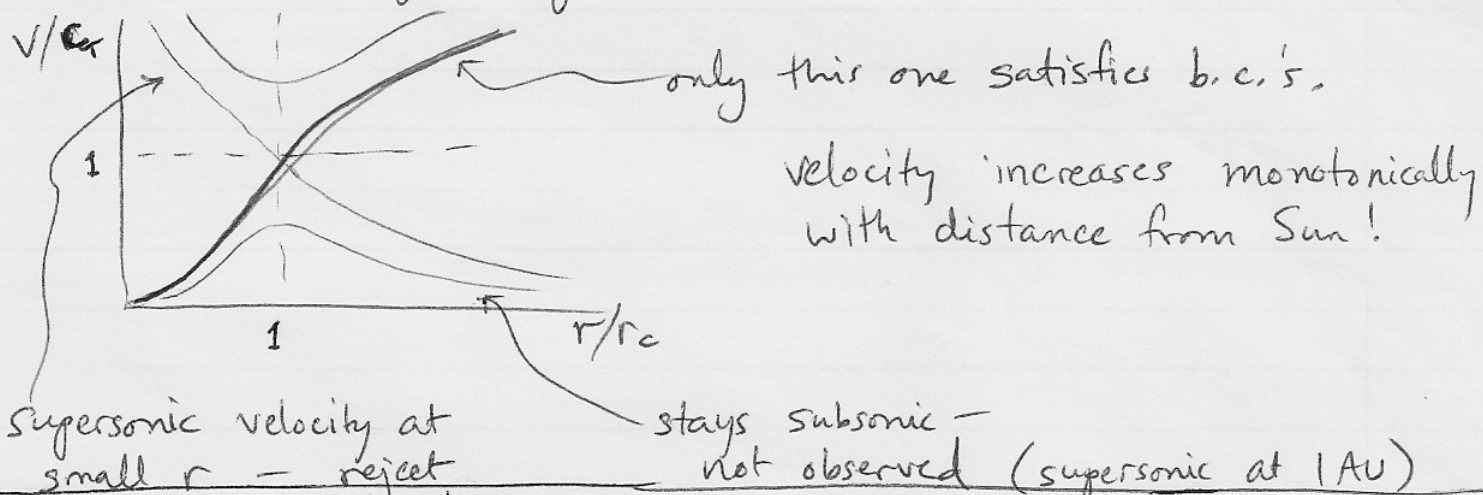 V/c
only this one satisfies b.c.'s.
1
velocity increases monotonically
with distance from Sun!
1
r/rc
supersonic velocity at
small r — reject
stays subsonic —
not observed (supersonic at 1AU)